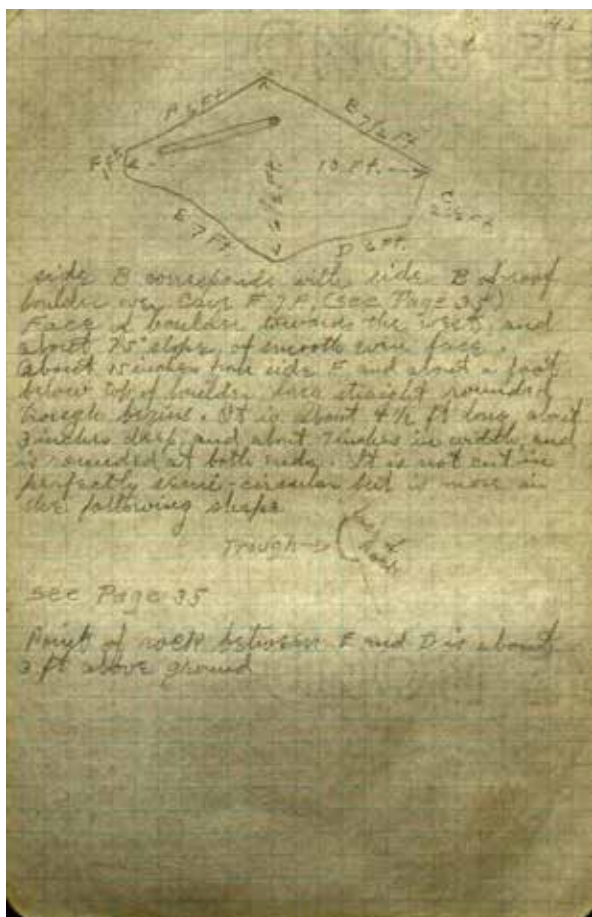 A 6 Ft
B 7½ Ft
10 Ft.
6½ Ft.
E 7 Ft
D 6 Ft.
side B corresponds with side B of roof
boulder over Cave F 7 F. (see Page 35)
Face of boulder towards the west, and
about 75° slope, of smooth even face.
About 15 inches from side F and about a foot
below top of boulder long straight rounded
trough begins. It is about 4½ ft long, about
3 inches deep, and about 7 inches in width, and
is rounded at both ends. It is not cut in
perfectly semi-circular but is more in
the following shape
Trough
of Rock
see Page 35
Point of rock between E and D is about
3 ft above ground